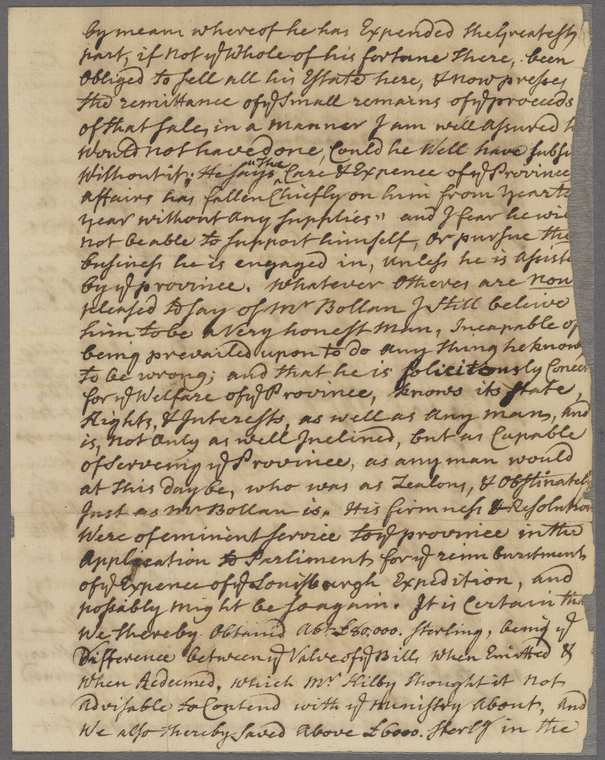 by means whereof he has Expended the Greatest
part, if not yᵉ Whole of his fortune There, been
Obliged to sell all his Estate here, & now presses
the remittance of yᵉ Small remains of yᵉ proceeds
of that sale, in a manner I am well assured h
would not have done, Could he Well have subsi
without it; He says "The Care & Expence of yᵉ Province
affairs has fallen Chiefly on him from year to
year without any supplies" and I fear he wi
not be able to support himself, Or pursue the
business he is engaged in, unless he is assist
by yᵉ province. Whatever Otheres are now
pleased to say of Mʳ Bollan I still beleive
him to be a Very honest Man, Incapable of
being prevailed upon to do any thing he know
to be wrong; and that he is solicitously Concer
for yᵉ Welfare of yᵉ Province, knows its State,
Rights, & Interests, as well as any man, And
is, not Only as well Inclined, but as Capable
of Serveing yᵉ Province, as any man would
at this day be, who was as Zealous, & Obstinately
Just as Mʳ Bollan is. His firmness & Resolution
Were of eminent service to yᵉ province in the
Application to Parliment for yᵉ reimburstment
of yᵉ Expence of yᵉ Louisburgh Expedition, and
possably might be so again. It is Certain tha
We thereby Obtain'd Abᵗ £80,000. Sterling, being yᵉ
Difference between yᵉ Value of yᵉ Bills when Emitted &
when Redeemed, which Mʳ Kilby thought it not
Advisable to Contend with yᵉ Ministry About, and
We also thereby saved above £6000. Sterlᵍ in the